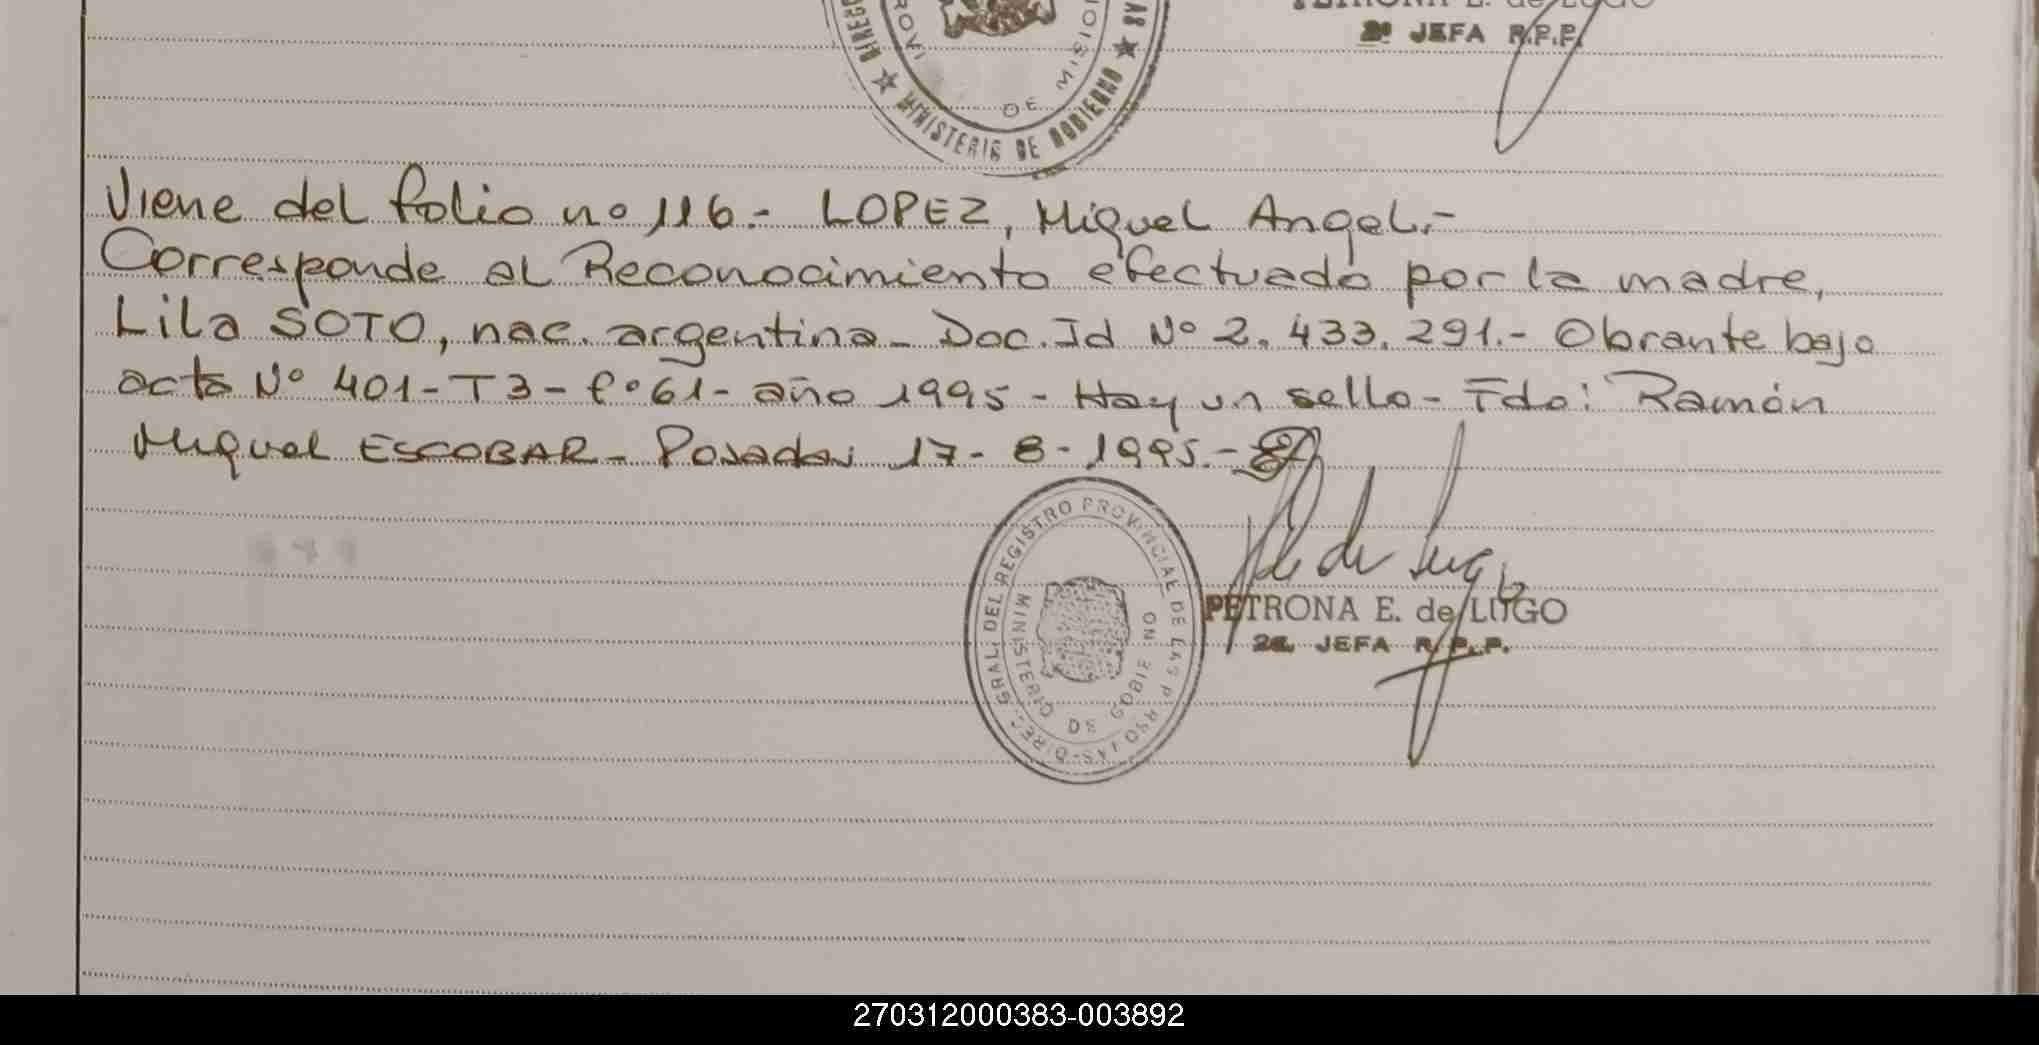 PETRONA E. de LUGO
2ª JEFA R.P.P.
MINISTERIO DE GOBIERNO
DE MISIO
Viene del folio nº 116.- LOPEZ, Miguel Angel.-
Corresponde al Reconocimiento efectuado por la madre,
Lila SOTO, nac. argentina - Doc. Id Nº 2.433.291.- Obrante bajo
acta Nº 401 - T3 - fº 61 - año 1995 - Hay un sello - Fdo: Ramón
Miguel ESCOBAR - Posadas 17 - 8 - 1995.-
GRAL. DEL REGISTRO PROVINCIAL DE LAS PERSONAS - DIREC.
MINISTERIO DE GOBIERNO
PETRONA E. de LUGO
2a. JEFA R.P.P.
270312000383-003892